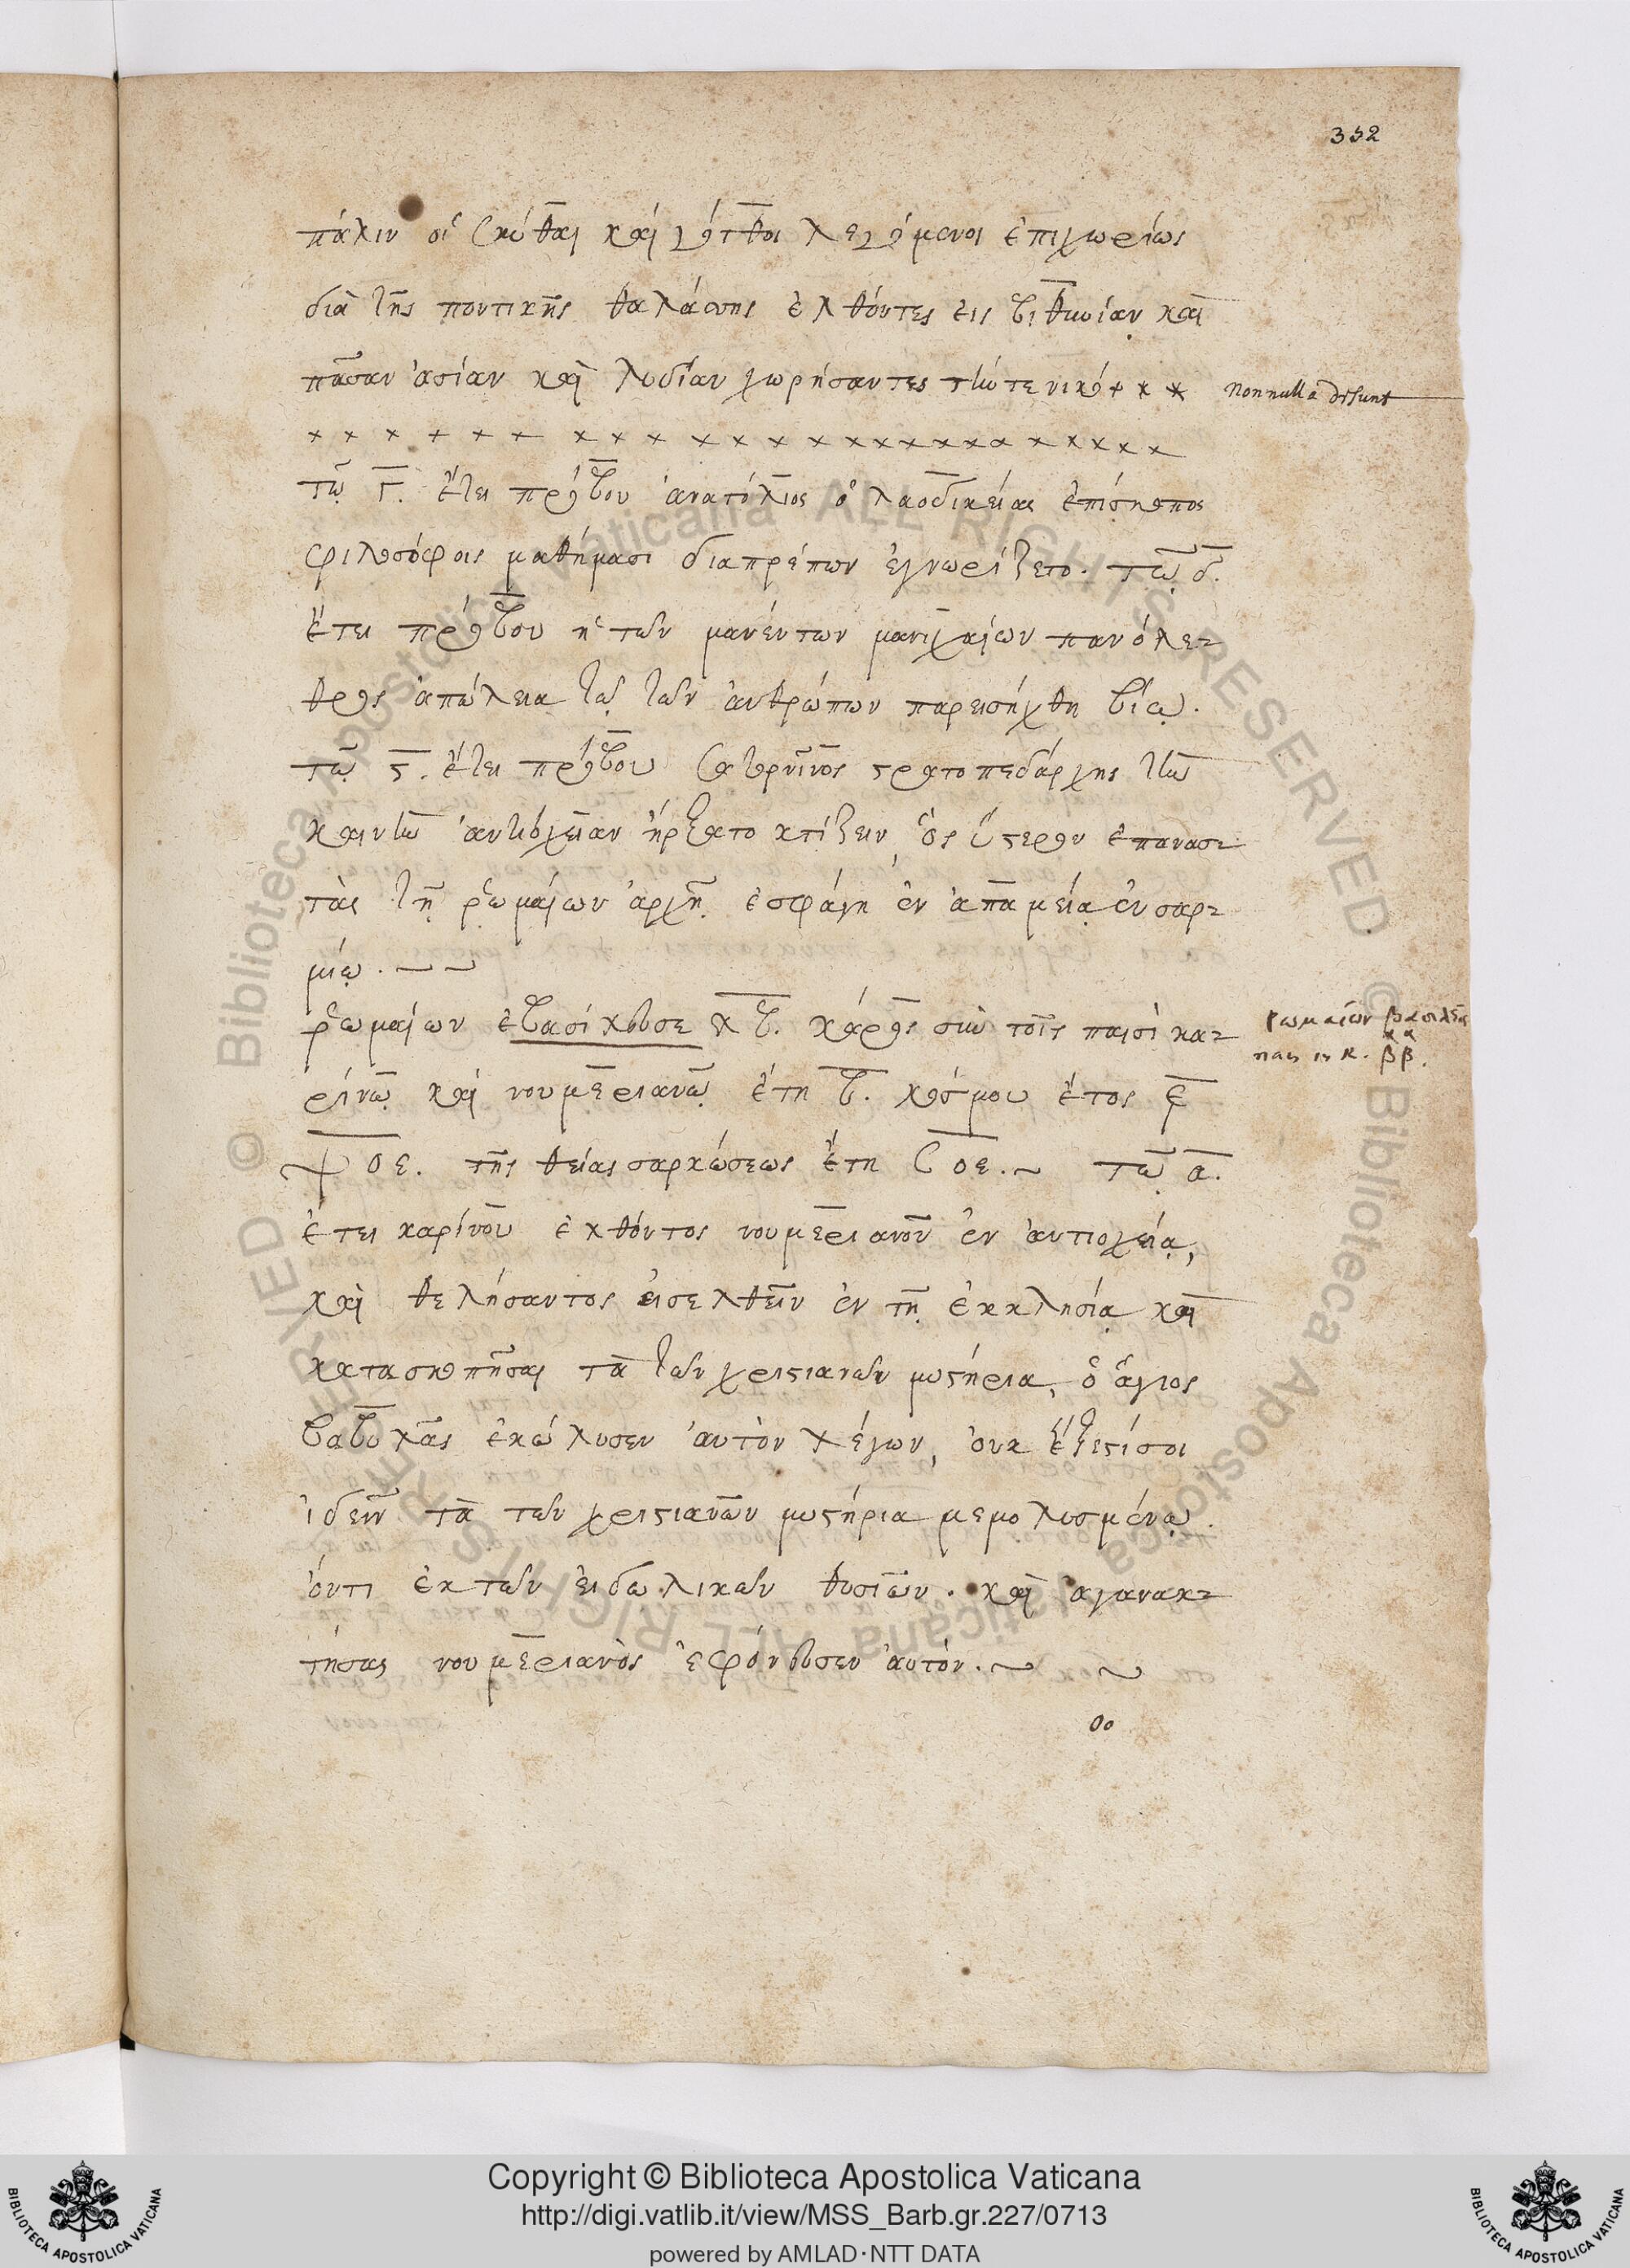 352
πάλιν οἱ Σκύθαι καὶ γότθοι λεγόμενοι ἐπιχωρίως
διὰ τῆς ποντικῆς θαλάσσης ἐλθόντες εἰς βιθυνίαν καὶ
πᾶσαν ἀσίαν καὶ λυδίαν χωρήσαντες τήν τε νικο + x x nonnulla desunt
x x x + x x x x x x x x x x x x x x x x x x x x x
τῷ γ. ἔτει πρόβου ἀνατόλιος ὁ λαοδικείας ἐπίσκοπος
φιλοσόφοις μαθήμασι διαπρέπων ἐγνωρίζετο. τῷ δ.
ἔτει πρόβου ἡ τῶν μανέντων μανιχαίων πανόλε-
θρος ἀπώλεια τῷ τῶν ἀνθρώπων παρεισήχθη βίῳ.
τῷ ϛ. ἔτει πρόβου Σατορνῖνος στρατοπεδάρχης τὴν
καινὴν ἀντιόχειαν ἤρξατο κτίζειν, ὃς ὕστερον ἐπανασ-
τὰς τῇ ῥωμαίων ἀρχῇ ἐσφάγη ἐν ἀπαμείᾳ ἐν σαρ-
μίῳ.
ῥωμαίων ἐβασίλευσε λβ. κάρος σὺν τοῖς παισὶ κα-
ρίνῳ καὶ νουμεριανῷ ἔτη β. κόσμου ἔτος ε
ψοε. τῆς θείας σαρκώσεως ἔτη σοε. τῷ α.
ἔτει καρίνου ἐλθόντος νουμεριανοῦ ἐν ἀντιοχείᾳ,
καὶ θελήσαντος εἰσελθεῖν ἐν τῇ ἐκκλησίᾳ καὶ
κατασκοπῆσαι τὰ τῶν χριστιανῶν μυστήρια, ὁ ἅγιος
βαβύλας ἐκώλυσεν αὐτὸν λέγων, οὐκ ἔξεστί σοι
ἰδεῖν τὰ τῶν χριστιανῶν μυστήρια μεμολυσμένῳ
ὄντι ἐκ τῶν εἰδωλικῶν θυσιῶν. καὶ ἀγανακ-
τήσας νουμεριανὸς ἐφόνευσεν αὐτόν.
ῥωμαίων
Copyright © Biblioteca Apostolica Vaticana
http://digi.vatlib.it/view/MSS_Barb.gr.227/0713
powered by AMLAD·NTT DATA
BIBLIOTECA APOSTOLICA VATICANA
BIBLIOTECA APOSTOLICA VATICANA
© Biblioteca Apostolica Vaticana ALL RIGHTS RESERVED
© Biblioteca Apostolica Vaticana ALL RIGHTS RESERVED